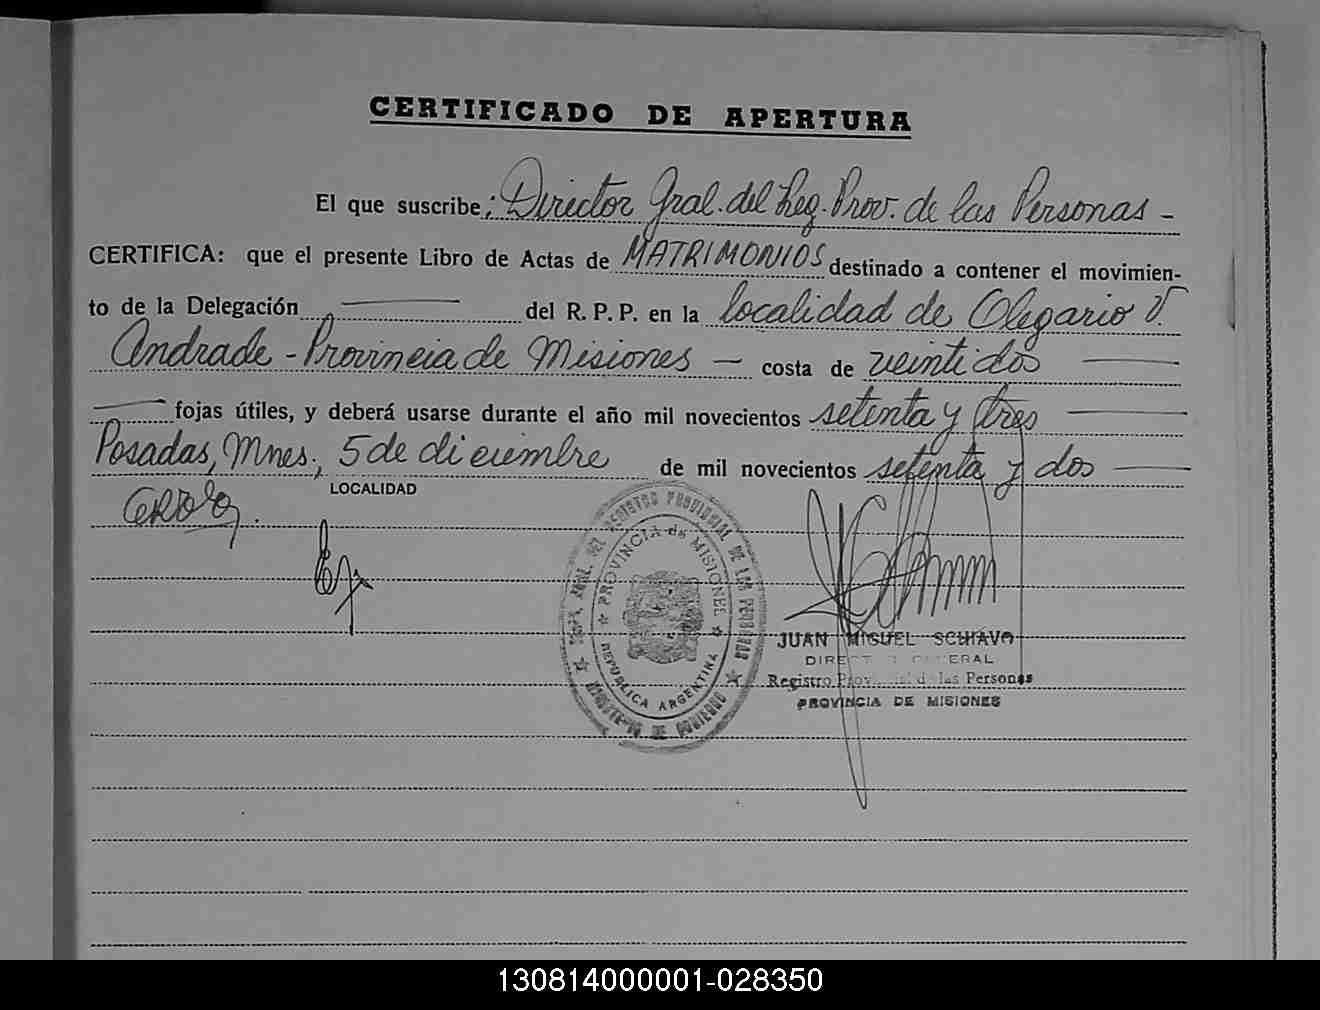 CERTIFICADO DE APERTURA
El que suscribe: Director Gral. del Reg. Prov. de las Personas -
CERTIFICA: que el presente Libro de Actas de MATRIMONIOS destinado a contener el movimien-
to de la Delegación del R. P. P. en la localidad de Olegario V.
Andrade - Provincia de Misiones - costa de veintidos
fojas útiles, y deberá usarse durante el año mil novecientos setenta y tres
Posadas, Mnes., 5 de diciembre de mil novecientos setenta y dos
LOCALIDAD
GRAL. DEL REGISTRO PROVINCIAL DE LAS PERSONAS
PROVINCIA de MISIONES
REPUBLICA ARGENTINA
DE GOBIERNO
JUAN MIGUEL SCHIAVO
DIRECTOR GENERAL
Registro Provincial de las Personas
PROVINCIA DE MISIONES
130814000001-028350